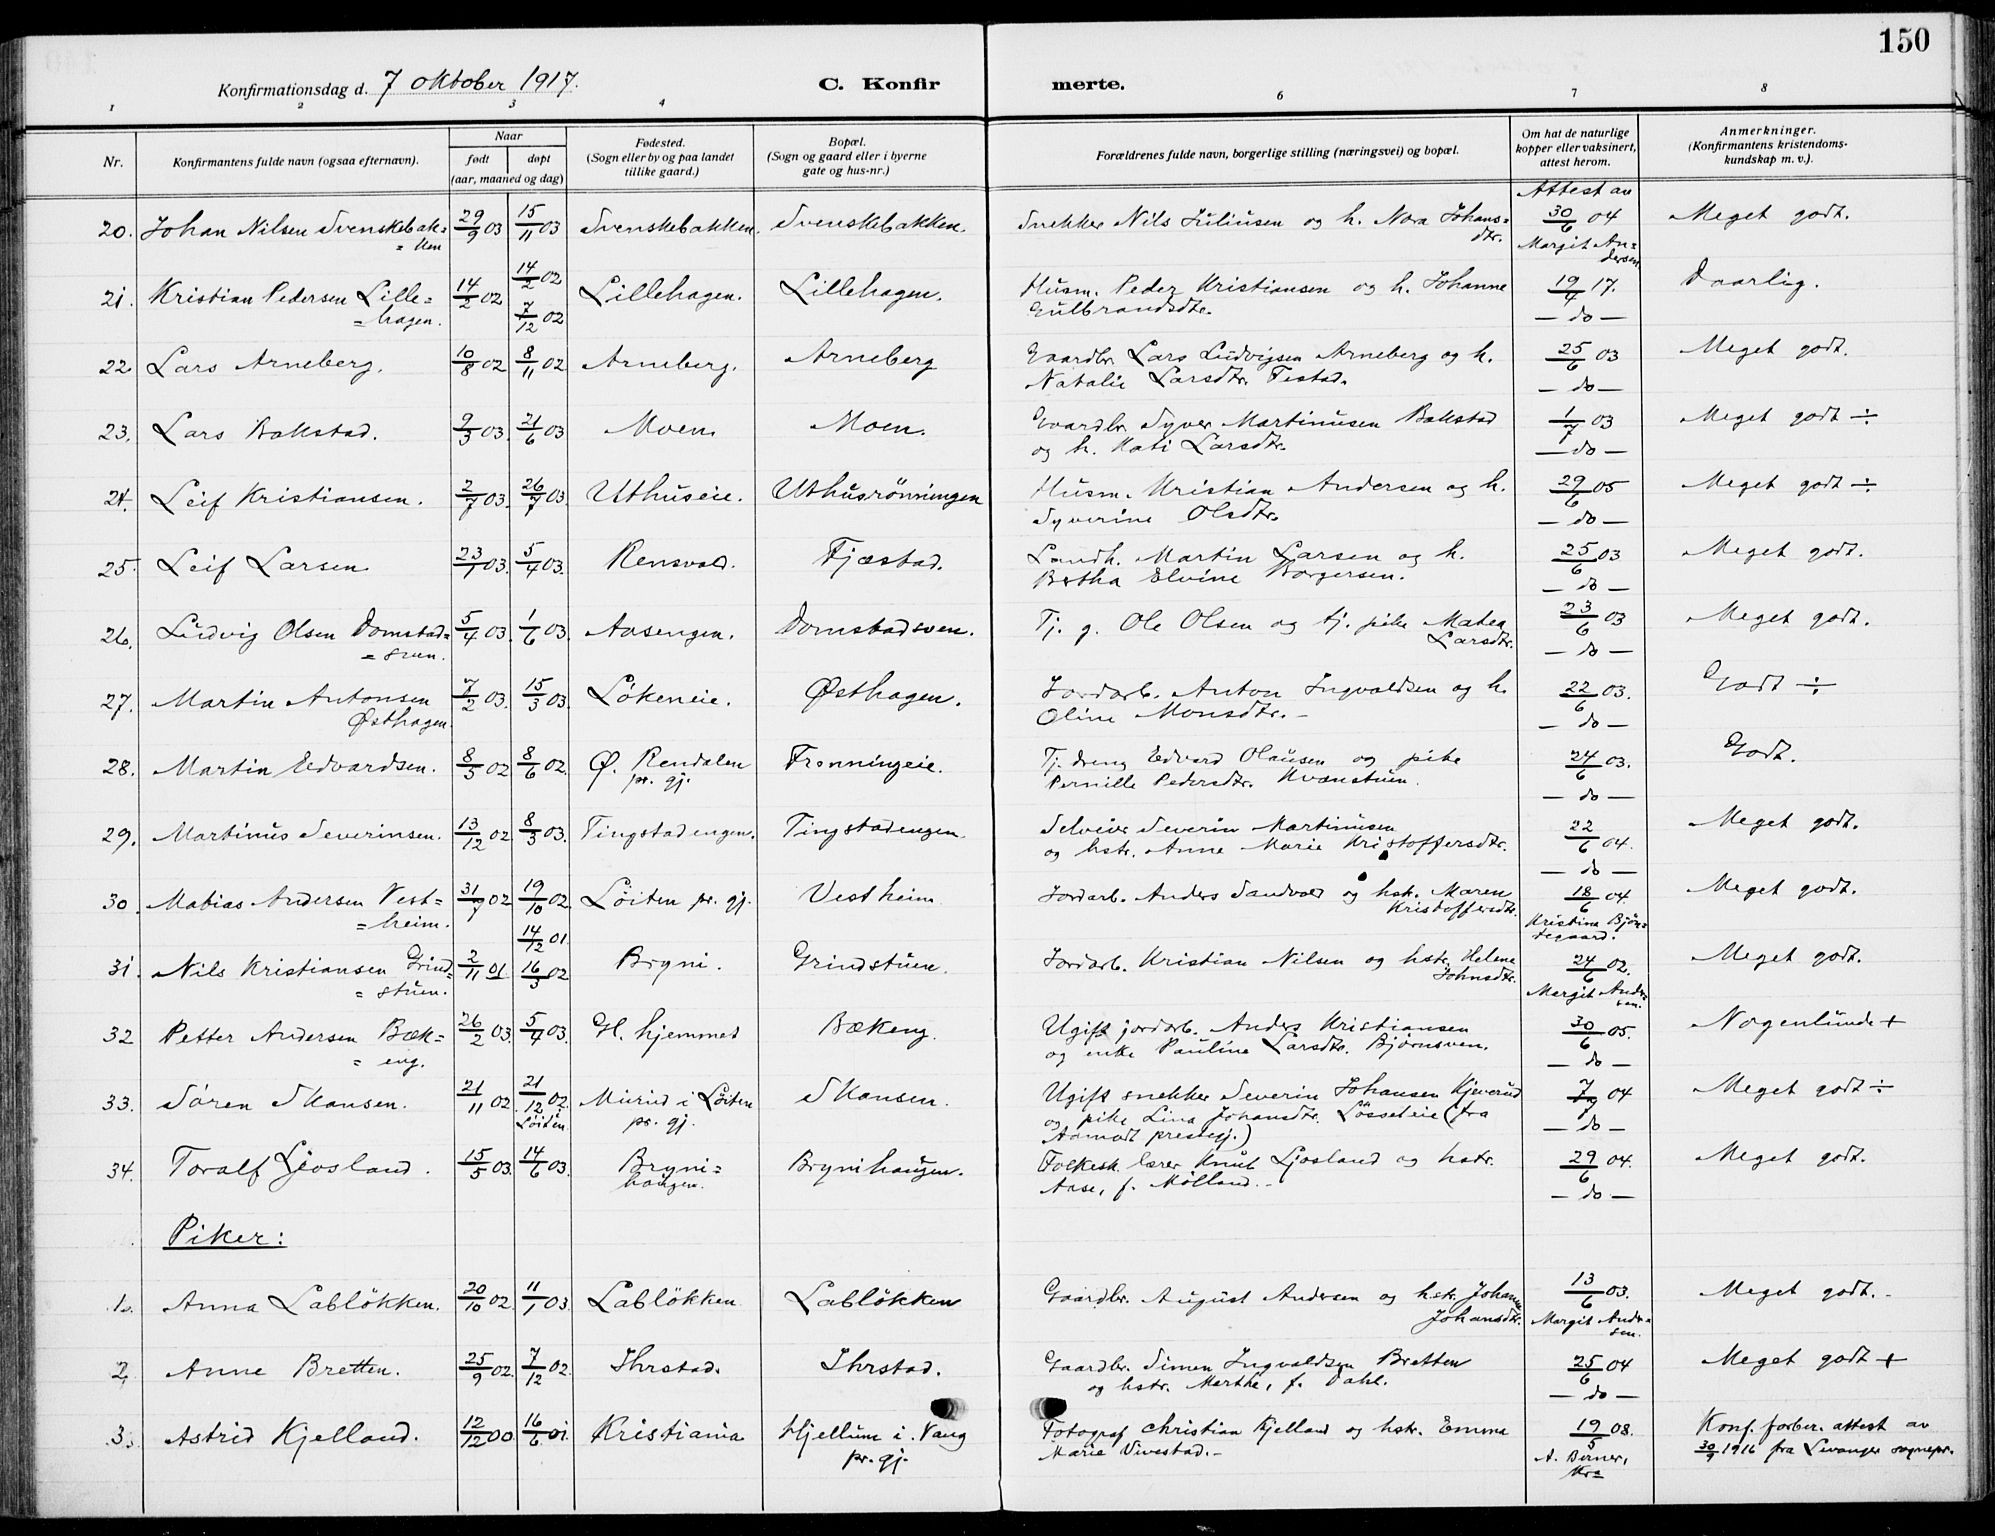 150
Konfirmationsdag d. 7 oktober 1917.
C. Konfirmerte.
1 2 3 4 6 7 8
Nr. Konfirmantens fulde navn (ogsaa efternavn). Naar født døpt (aar, maaned og dag) Fødested. (Sogn eller by og paa landet tillike gaard.) Bopæl. (Sogn og gaard eller i byerne gate og hus-nr.) Forældrenes fulde navn, borgerlige stilling (næringsvei) og bopæl. Om hat de naturlige kopper eller vaksinert, attest herom. Anmerkninger. (Konfirmantens kristendomskundskap m. v.).
Attest av
20. Johan Nilsen Svenskebak= 29/9 03 15/11 03 Svenskebakken. Svenskebakken. Snekker Nils Juliusen og h. Nora Johans= 30/6 04 Meget godt.
=ken dtr. Margit An=
dersen
21. Kristian Pedersen Lille= 14/2 02 14/2 02 Lillehagen. Lillehagen. Husm. Peder Kristiansen og h. Johanne 19/4 17. Daarlig.
=hagen. 7/12 02 Gulbrandsdtr. — do —
22 Lars Arneberg. 10/8 02 8/11 02 Arneberg. Arneberg Gaardbr. Lars Ludvigsen Arneberg og h. 25/6 03 Meget godt.
Natalie Larsdtr. Testad. — do —
23. Lars Bakstad. 9/3 03. 21/6 03 Moen. Moen. Gaardbr. Syver Martinusen Bakstad 1/7 03 Meget godt ÷
og h. Kati Larsdtr. — do —
24. Leif Kristiansen. 2/7 03. 26/7 03. Uthuseie. Uthusrönningen Husm. Kristian Andersen og h. 29/6 05 Meget godt ÷
Syverine Olsdtr. — do —
25. Leif Larsen 23/1 03. 5/4 03. Rensvold. Fjæstad. Landh. Martin Larsen og h. 25/6 03 Meget godt.
Bertha Elvine Borgersen. — do —
26. Ludvig Olsen Domstad= 5/4 03. 1/6 03. Aasengen. Domstadsven. Tj. g. Ole Olsen og tj. pike Matea 23/6 03 Meget godt.
=sven. Larsdtr. — do —
27. Martin Antonsen 7/2 03. 15/3 03. Lökeneie. Østhagen. Jordarb. Anton Ingvaldsen og h. 22/6 03. Godt ÷
Østhagen. Oline Monsdtr. — do —
28. Martin Edvardsen. 8/5 02 8/6 02. Ø. Rendalen Fronningeie. Tj. dreng Edvard Olausen og pike 24/6 03. Godt.
pr. gj. Pernille Pedersdtr. Kvænstuen. — do —
29. Martinus Severinsen. 13/12 02 8/3 03. Tingstadengen. Tingstadengen. Selveier Severin Martinusen 22/6 04. Meget godt.
og hstr. Anne Marie Kristoffersdtr. — do —
30. Matias Andersen Vest= 31/7 02 19/10 02. Löiten pr. gj. Vestheim Jordarb. Anders Sandvold og hstr. Maren 18/6 04. Meget godt.
=heim. Kristoffersdtr. Kristine Bjøn=
tegaard.
31. Nils Kristiansen Grind= 2/11 01 14/12 01. 16/3 02 Bryni. Grindstuen. Jordarb. Kristian Nilsen og hstr. Helene 24/6 02. Meget godt.
=stuen. Johnsdtr. Margit Ander=
sen.
32 Petter Andersen Bæk= 26/2 03. 5/4 03. H. hjemmet Bækeng. Ugift jordarb. Anders Kristiansen 30/6 05. Nogenlunde +
=eng. og enke Pauline Larsdtr. Bjørnsven. — do —
33. Sören Skansen. 21/11 02. 21/12 02. Murud i Löiten Skansen. Ugift snekker Severin Johansen Kjeverud 7/7 04 Meget godt ÷
Löiten pr. gj. og pike Lina Johansdtr. Lösseteie (fra — do —
Aamodt prestegj.)
34. Toralf Ljosland. 15/5 03. 14/6 03. Bryni= Brynihaugen. Folkesk. lærer Knut Ljosland og hstr. 29/6 04. Meget godt.
haugen. Aase, f. Mölland. — do —
Piker:
1. Anna Lablökken. 20/10 02. 11/1 03. Lablökken. Lablökken Gaardbr. August Andersen og hstr. Johanne 13/6 03. Meget godt.
Johansdtr. Margit Ander=
sen.
2. Anne Bretten. 25/9 02. 7/12 02. Ihrstad. Ihrstad. Gaardbr. Simen Ingvaldsen Bretten 25/6 04 Meget godt +
og hstr. Marthe, f. Dahl. — do —
3. Astrid Kjelland. 12/12 00 16/6 01. Kristiania Hjellum i Vang Fotograf Christian Kjelland og hstr. Emma 19/5 08. Konf. forber. attest av
pr. gj. Marie Vivestad. A. Berner, 30/9 1916 fra Levanger sognepr.
Kra